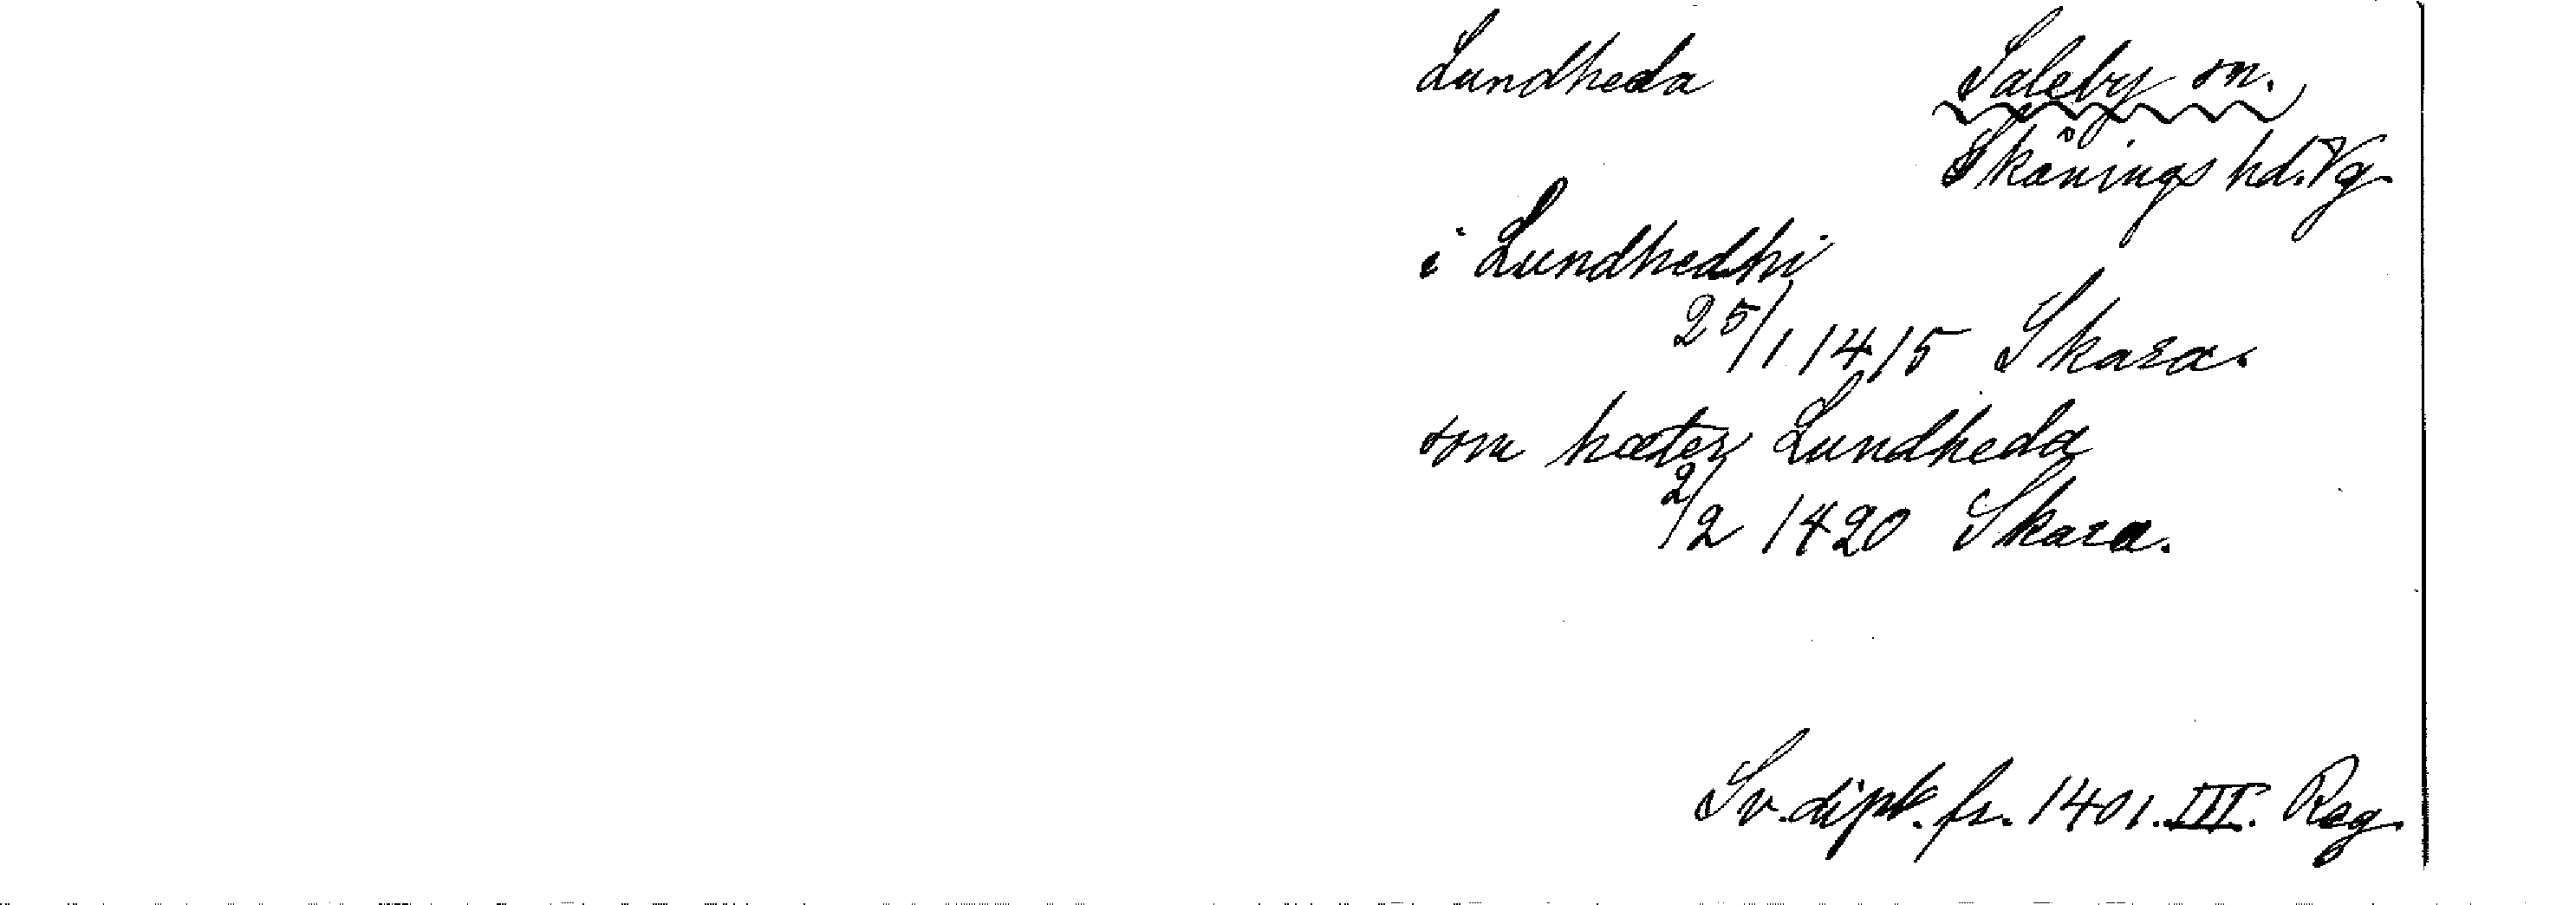 Lundheda Saleby sn.
Skånings hd. Vg.
i Lundhedhi
25/1 1415 Skara.
som hæter Lundheda
2/2 1420 Skara.
Sv. dipl. fr. 1401. III. Reg.